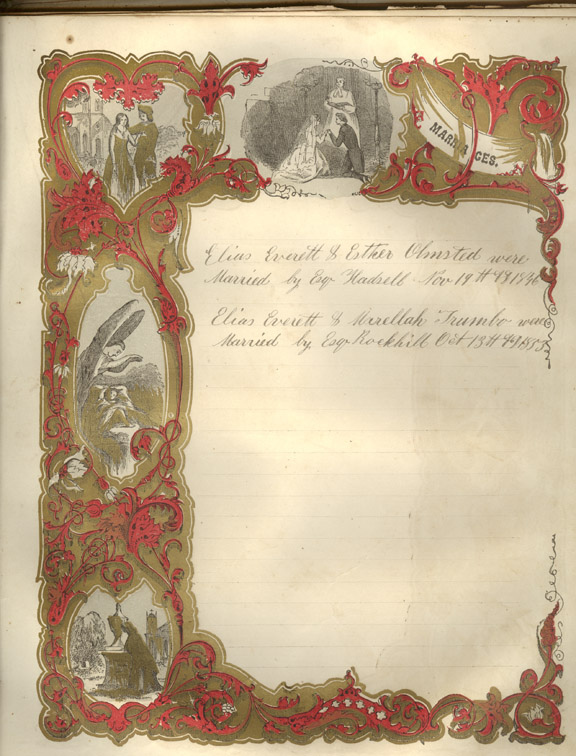 MARRIAGES.
Elias Everett & Esther Olmsted were
Married by Esq Hadsell Nov 19th
Elias Everett & Mirellah Trumbo were
Married by Esq Rockhill Oct 13th